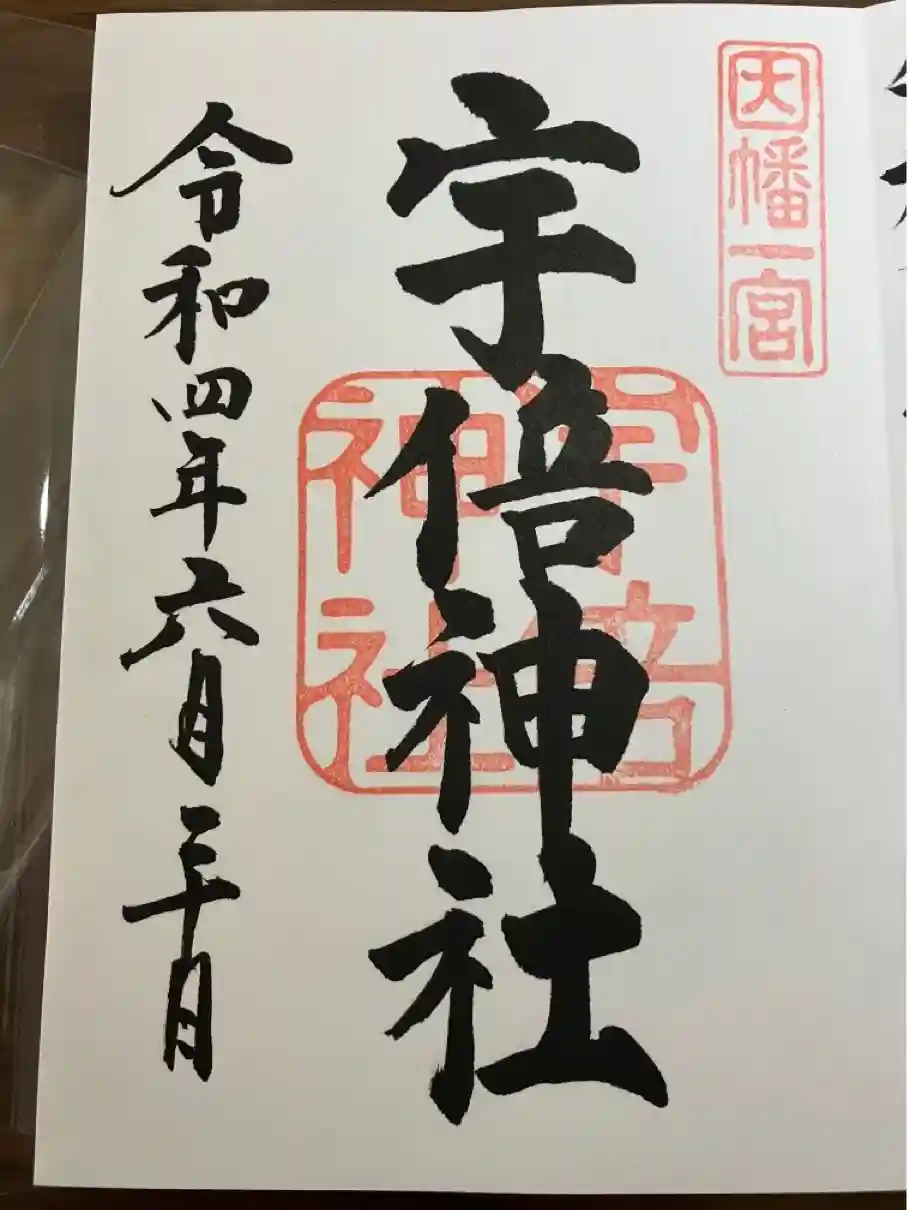 因幡一宮
宇倍神社
宇倍
神社
令和四年六月二十日